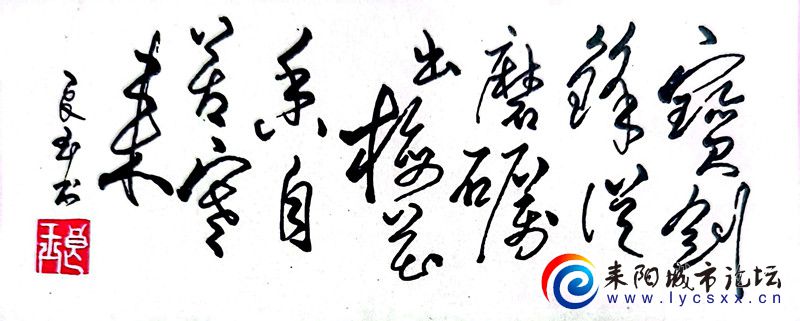 寶劍
鋒從
磨礪
出梅花
香自
苦寒
來
良玉书
耒阳城市论坛
www.lycsxx.cn